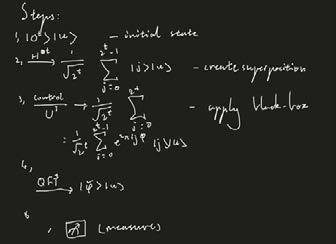 Steps:
1, |0^t>|u> - initial state
2, H^⊗t → 1/√2^t ∑_{j=0}^{2^t-1} |j>|u> - create superposition
3, control U^j → 1/√2^t ∑_{j=0}^{2^t} - apply black-box
= 1/√2^t ∑_{j=0}^{2^t-1} e^{2πijφ} |j>|u>
4,
QFT^† → |φ̃>|u>
, (measure)